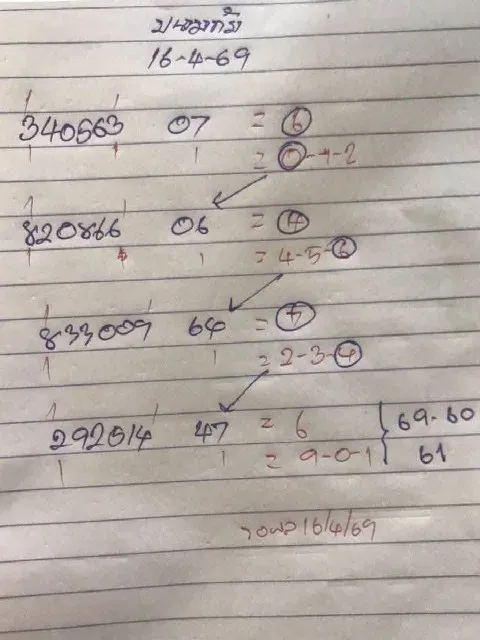 16-4-69
340563 07 = 6
= 0-1-2
820866 06 = 4
= 4-5-6
833009 64 = 7
= 2-3-4
292514 47 = 6 } 69-60
= 9-0-1 61
รอผล 16/4/69